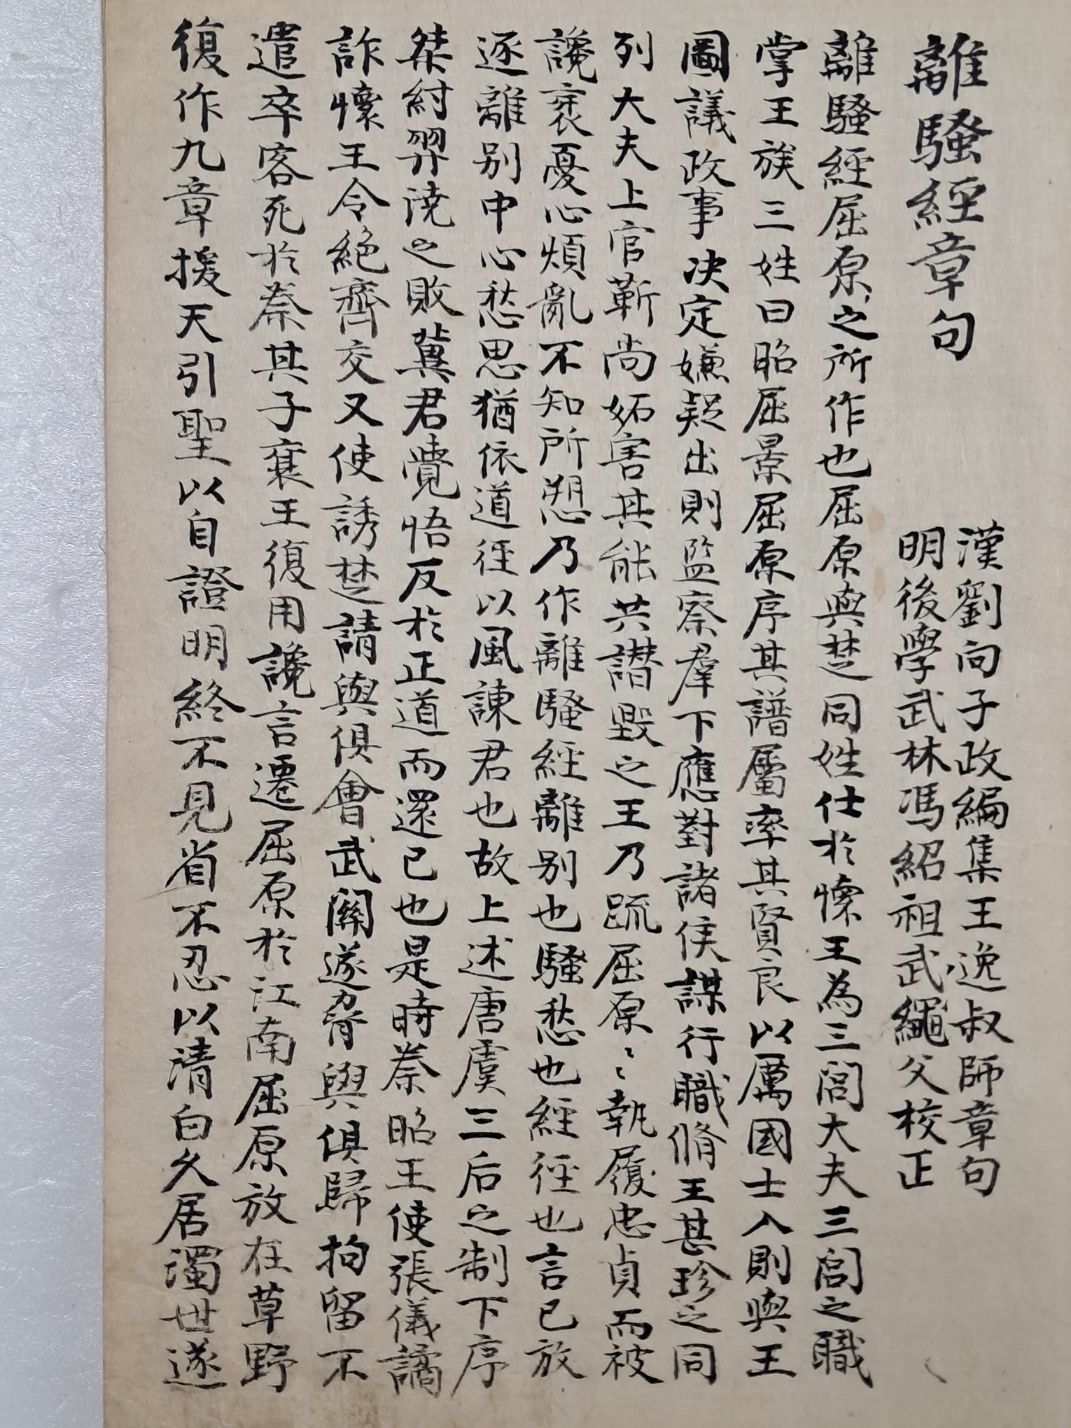 離騷經章句
漢劉向子政編集王逸叔師章句
明後學武林馮紹祖武繩父校正
離騷經屈原之所作也屈原與楚同姓仕於懷王為三閭大夫三閭之職
掌王族三姓曰昭屈景屈原序其譜屬率其賢良以厲國士入則與王
圖議政事決定嫌疑出則監察羣下應對諸侯謀行職脩王甚珍之同
列大夫上官靳尚妬害其能共譖毀之王乃疏屈原〻執履忠貞而被
讒衺憂心煩亂不知所愬乃作離騷經離別也騷愁也經徑也言已放
逐離別中心愁思猶依道徑以風諫君也故上述唐虞三后之制下序
桀紂羿澆之敗冀君覺悟反於正道而還已也是時秦昭王使張儀譎
詐懷王令絕齊交又使誘楚請與俱會武關遂脅與俱歸拘留不
遣卒客死於秦其子襄王復用讒言遷屈原於江南屈原放在草野
復作九章援天引聖以自證明終不見省不忍以清白久居濁世遂